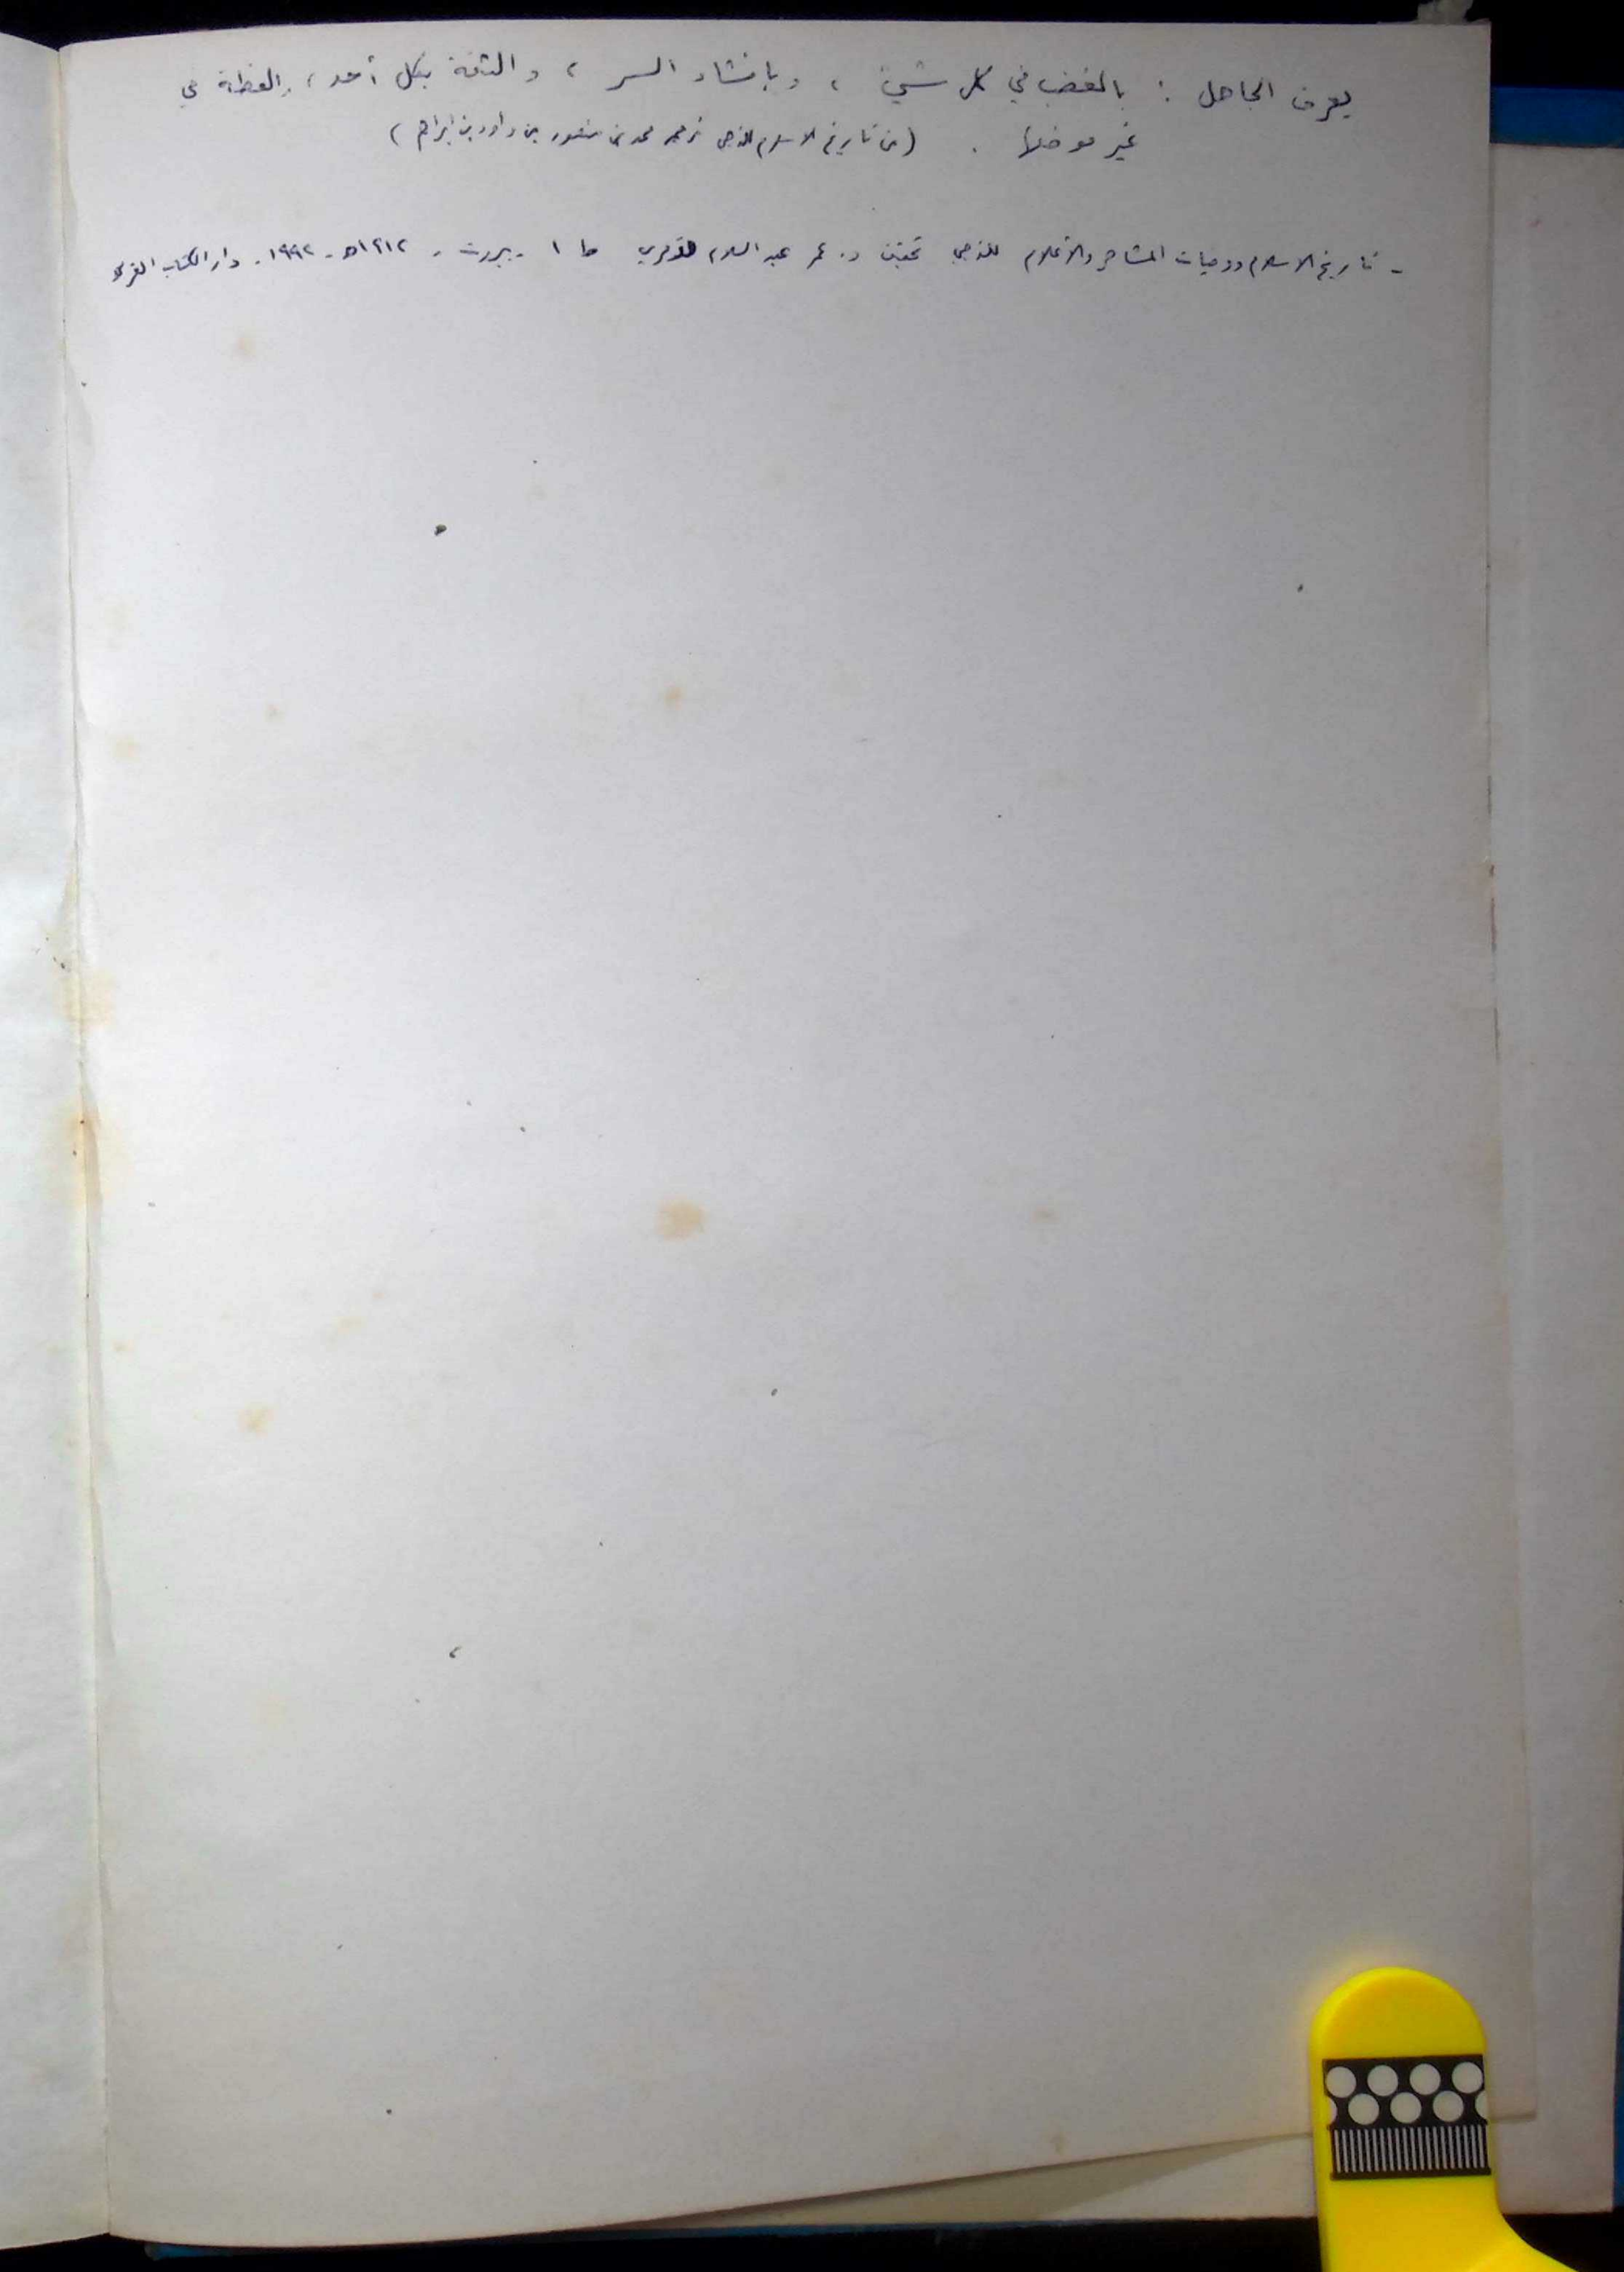 يعرف الجاهل : بالغضب في كل شيء ، وبإفشاء السر ، والثقة بكل أحد ، والعظة في
غير موضعها . (من تاريخ الاسلام للذهبي ترجمة محمد بن منصور بن داود بن ابراهيم)
- تاريخ الاسلام ووفيات المشاهير والأعلام للذهبي تحقيق د. عمر عبد السلام تدمري ط ١ - بيروت - ١٤١٢ه - ١٩٩٢ - دار الكتاب العربي